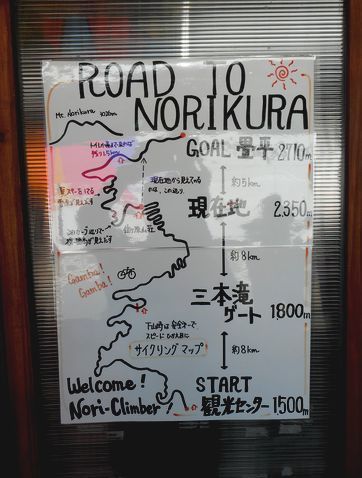 ROAD TO
NORIKURA
Mt. Norikura 3026m
GOAL 畳平 2710m
約5km
現在地 2350m
位ヶ原山荘
約8km
Gamba!
Gamba!
三本滝
ゲート 1800m
下山時は安全第一で、
スピードひかえ目に
サイクリングマップ
約8km
Welcome!
Nori-Climber!
START
観光センター 1500m